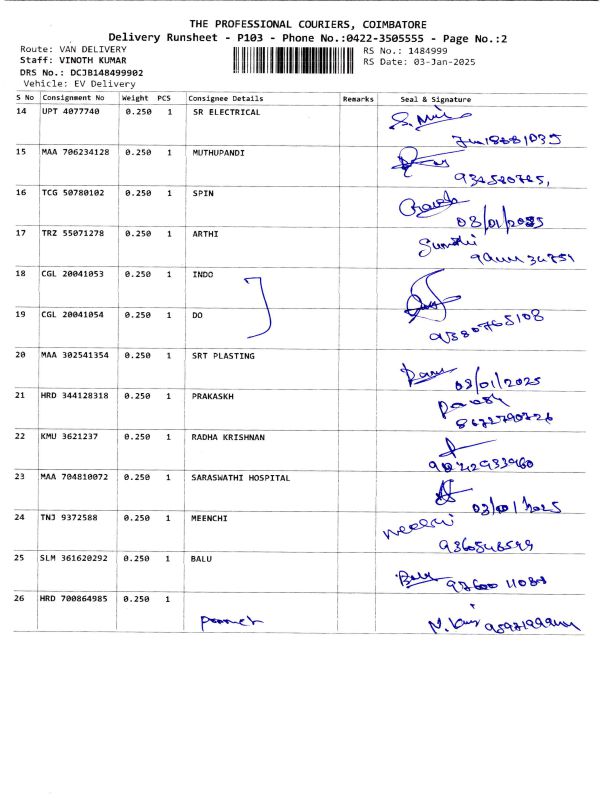 THE PROFESSIONAL COURIERS, COIMBATORE
Delivery Runsheet - P103 - Phone No.:0422-3505555 - Page No.:2
Route: VAN DELIVERY RS No.: 1484999
Staff: VINOTH KUMAR RS Date: 03-Jan-2025
DRS No.: DCJB148499902
Vehicle: EV Delivery
S No Consignment No Weight PCS Consignee Details Remarks Seal & Signature
14 UPT 4077740 0.250 1 SR ELECTRICAL
15 MAA 706234128 0.250 1 MUTHUPANDI
16 TCG 50780102 0.250 1 SPIN
03/01/2025
17 TRZ 55071278 0.250 1 ARTHI
18 CGL 20041053 0.250 1 INDO
19 CGL 20041054 0.250 1 DO
9580765108
20 MAA 302541354 0.250 1 SRT PLASTING
03/01/2025
21 HRD 344128318 0.250 1 PRAKASKH
22 KMU 3621237 0.250 1 RADHA KRISHNAN
23 MAA 704810072 0.250 1 SARASWATHI HOSPITAL
24 TNJ 9372588 0.250 1 MEENCHI
25 SLM 361620292 0.250 1 BALU
Balu
26 HRD 700864985 0.250 1